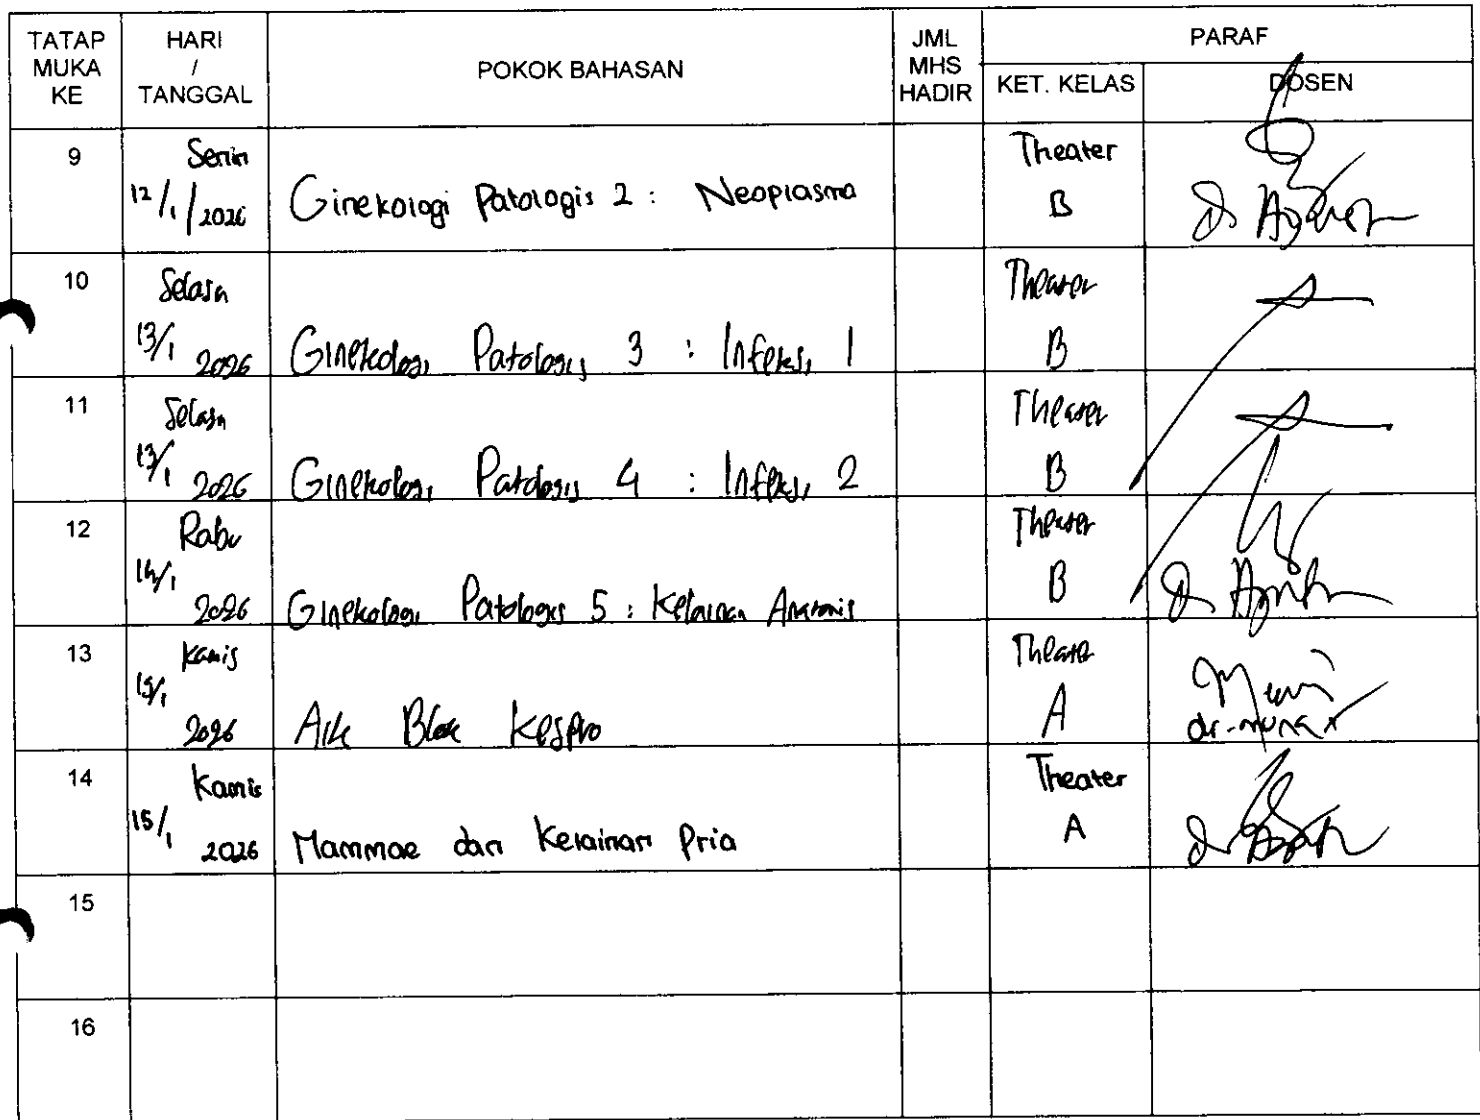 TATAP MUKA KE
HARI / TANGGAL
POKOK BAHASAN
JML MHS HADIR
PARAF
KET. KELAS
DOSEN
9
Senin
12/1/2026
Ginekologi Patologis 2 : Neoplasma
Theater
B
10
Selasa
13/1 2026
Ginekologi Patologis 3 : Infeksi 1
Theater
B
11
Selasa
13/1 2026
Ginekologi Patologis 4 : Infeksi 2
Theater
B
12
Rabu
14/1 2026
Ginekologi Patologis 5 : Kelainan Anatomis
Theater
B
13
Kamis
15/1 2026
AIK Blok Kespro
Theater
A
14
Kamis
15/1 2026
Mammae dan Kelainan Pria
Theater
A
15
16